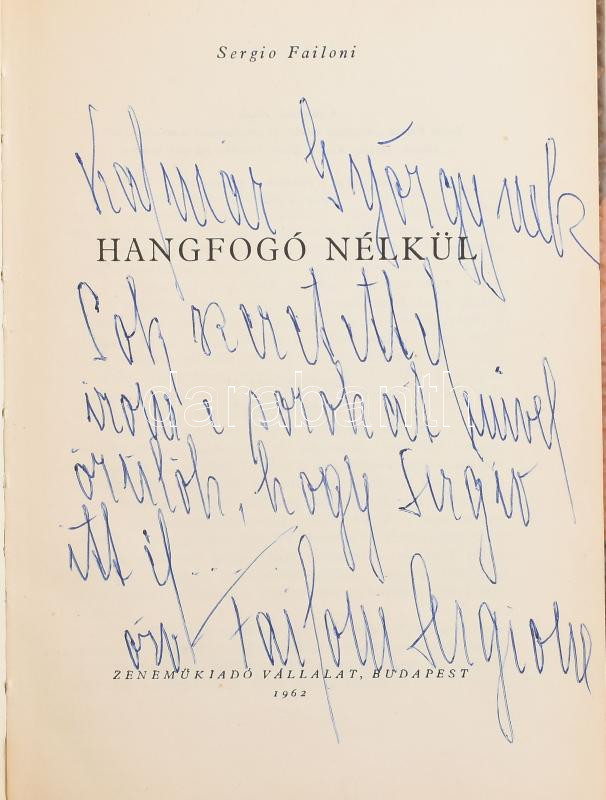 Sergio Failoni
Kálmár Györgynek
HANGFOGÓ NÉLKÜL
Sok szeretettel
írom e sorokat mivel
örülök, hogy Sergio
itt él....
özv Failoni Sergione
ZENEMŰKIADÓ VÁLLALAT, BUDAPEST
1962
darabanth